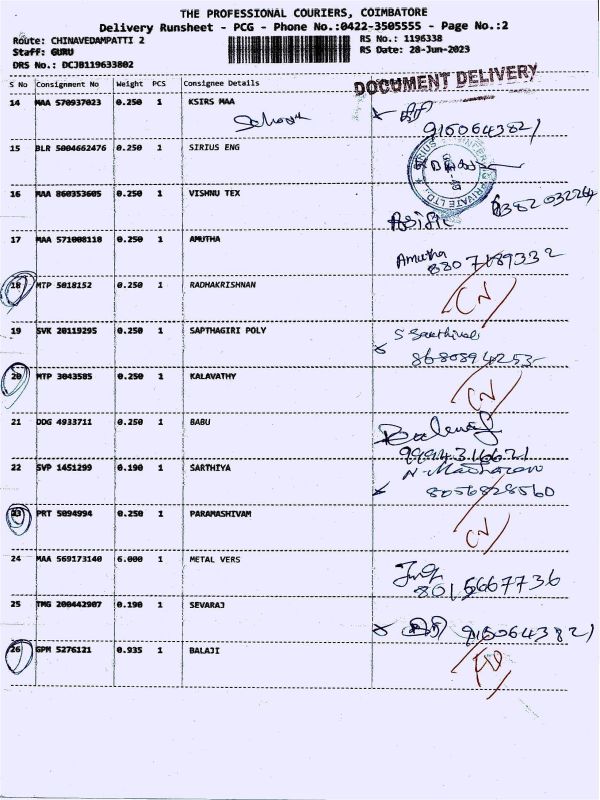 THE PROFESSIONAL COURIERS, COIMBATORE
Delivery Runsheet - PCG - Phone No.:0422-3505555 - Page No.:2
Route: CHINAVEDAMPATTI 2
RS No.: 1196338
Staff: GURU
RS Date: 28-Jun-2023
DRS No.: DCJB119633802
DOCUMENT DELIVERY
S No Consignment No Weight PCS Consignee Details
14 MAA 570937023 0.250 1 KSIRS MAA
9150643821
15 BLR 5004662476 0.250 1 SIRIUS ENG
16 MAA 860353605 0.250 1 VISHNU TEX
6382032264
17 MAA 571008110 0.250 1 AMUTHA
Amutha
8807189332
18 MTP 5018152 0.250 1 RADHAKRISHNAN
CN
19 SVK 20119295 0.250 1 SAPTHAGIRI POLY
8680894253
20 MTP 3043585 0.250 1 KALAVATHY
CN
21 DDG 4933711 0.250 1 BABU
9994316621
22 SVP 1451299 0.190 1 SARTHIYA
8056828560
23 PRT 5094994 0.250 1 PARAMASHIVAM
CN
24 MAA 569173140 6.000 1 METAL VERS
8015667736
25 TMG 200442907 0.190 1 SEVARAJ
9150643821
26 GPM 5276121 0.935 1 BALAJI